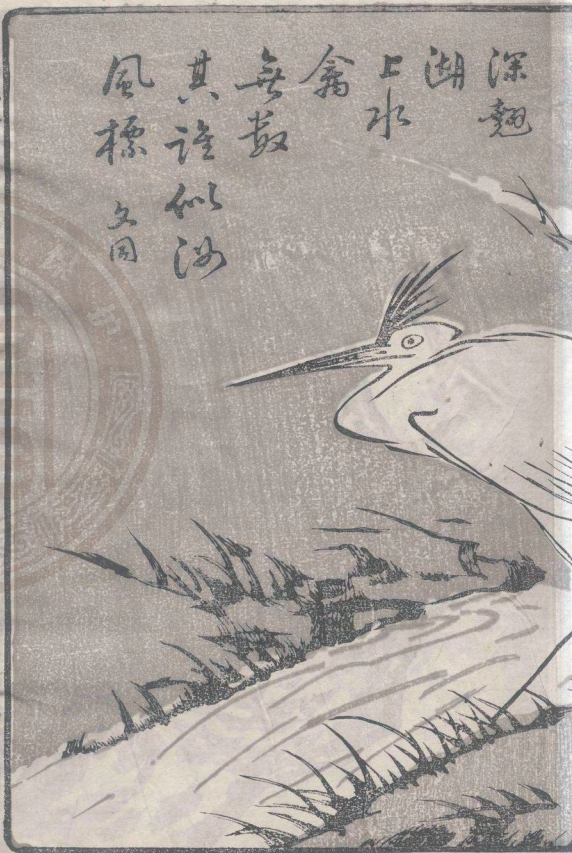 深翹
湖
上水
禽
無数
其誰似汝
風標 文同